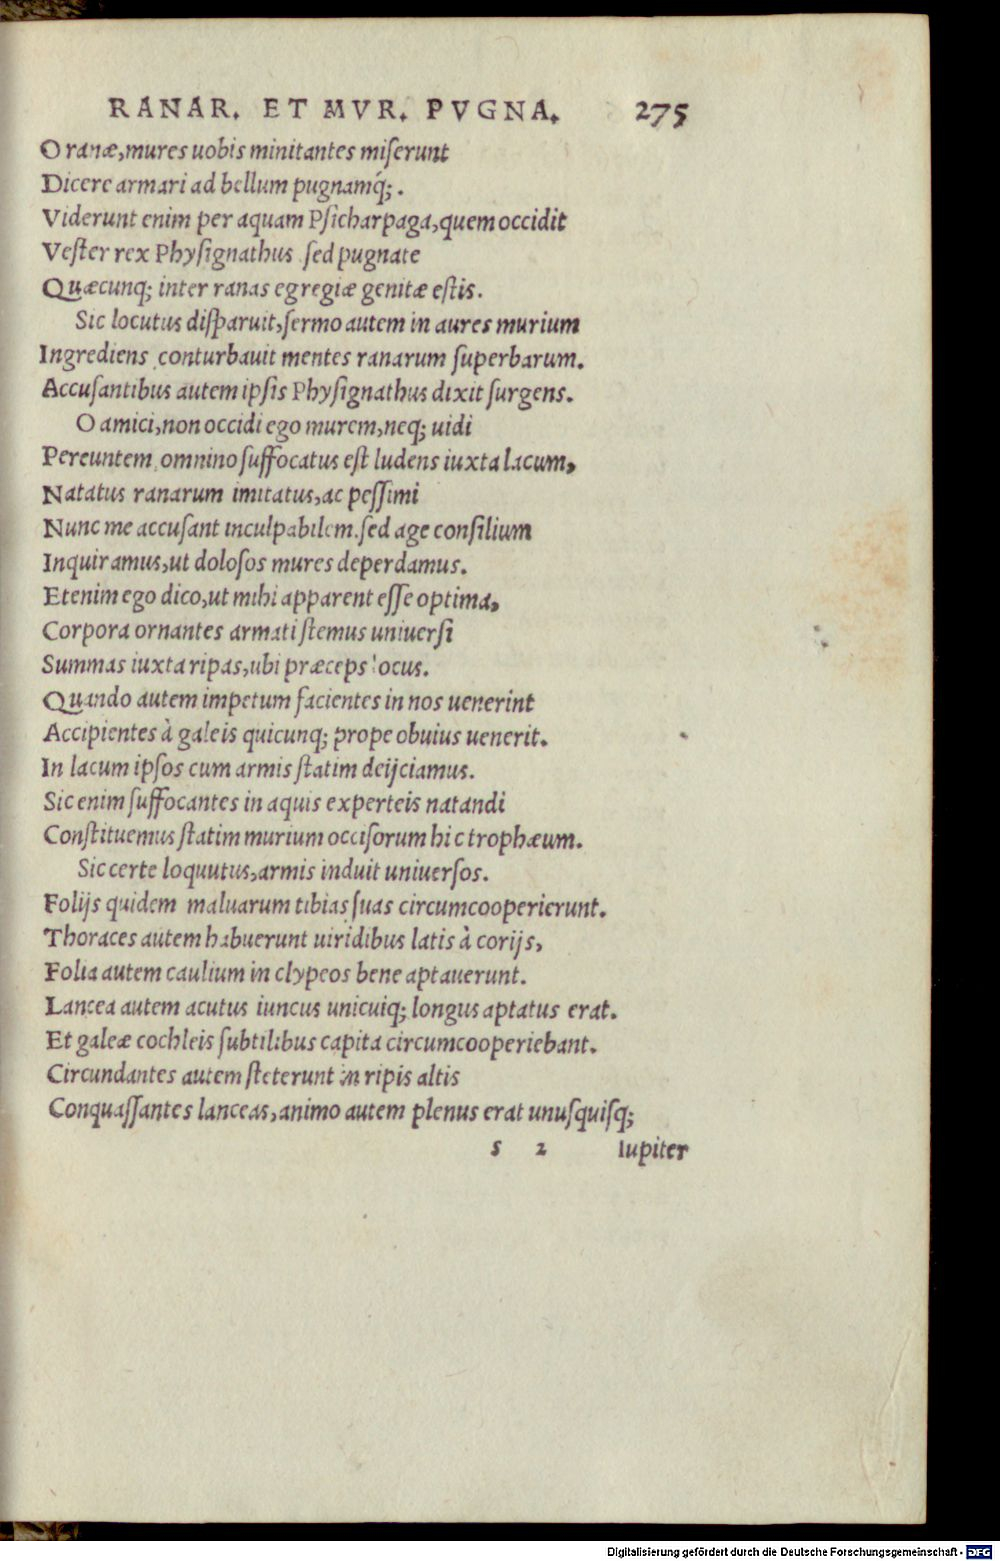 RANAR. ET MVR. PVGNA. 275
O ranæ, mures uobis minitantes miſerunt
Dicere armari ad bellum pugnamq́;.
Viderunt enim per aquam Pſicharpaga, quem occidit
Veſter rex Phyſignathus ſed pugnate
Quæcunq; inter ranas egregiæ genitæ eſtis.
Sic locutus diſparuit, ſermo autem in aures murium
Ingrediens conturbauit mentes ranarum ſuperbarum.
Accuſantibus autem ipſis Phyſignathus dixit ſurgens.
O amici, non occidi ego murem, neq; uidi
Pereuntem, omnino ſuffocatus eſt ludens iuxta lacum,
Natatus ranarum imitatus, ac peſſimi
Nunc me accuſant inculpabilem. ſed age conſilium
Inquiramus, ut doloſos mures deperdamus.
Etenim ego dico, ut mihi apparent eſſe optima,
Corpora ornantes armati ſtemus uniuerſi
Summas iuxta ripas, ubi præceps locus.
Quando autem impetum facientes in nos uenerint
Accipientes à galeis quicunq; prope obuius uenerit.
In lacum ipſos cum armis ſtatim deijciamus.
Sic enim ſuffocantes in aquis experteis natandi
Conſtituemus ſtatim murium occiſorum hic trophæum.
Sic certe loquutus, armis induit uniuerſos.
Folijs quidem maluarum tibias ſuas circumcooperierunt.
Thoraces autem habuerunt uiridibus latis à corijs,
Folia autem caulium in clypeos bene aptauerunt.
Lancea autem acutus iuncus unicuiq; longus aptatus erat.
Et galeæ cochleis ſubtilibus capita circumcooperiebant.
Circundantes autem ſteterunt in ripis altis
Conquaſſantes lanceas, animo autem plenus erat unuſquiſq;
s 2 Iupiter
Digitalisierung gefördert durch die Deutsche Forschungsgemeinschaft - DFG